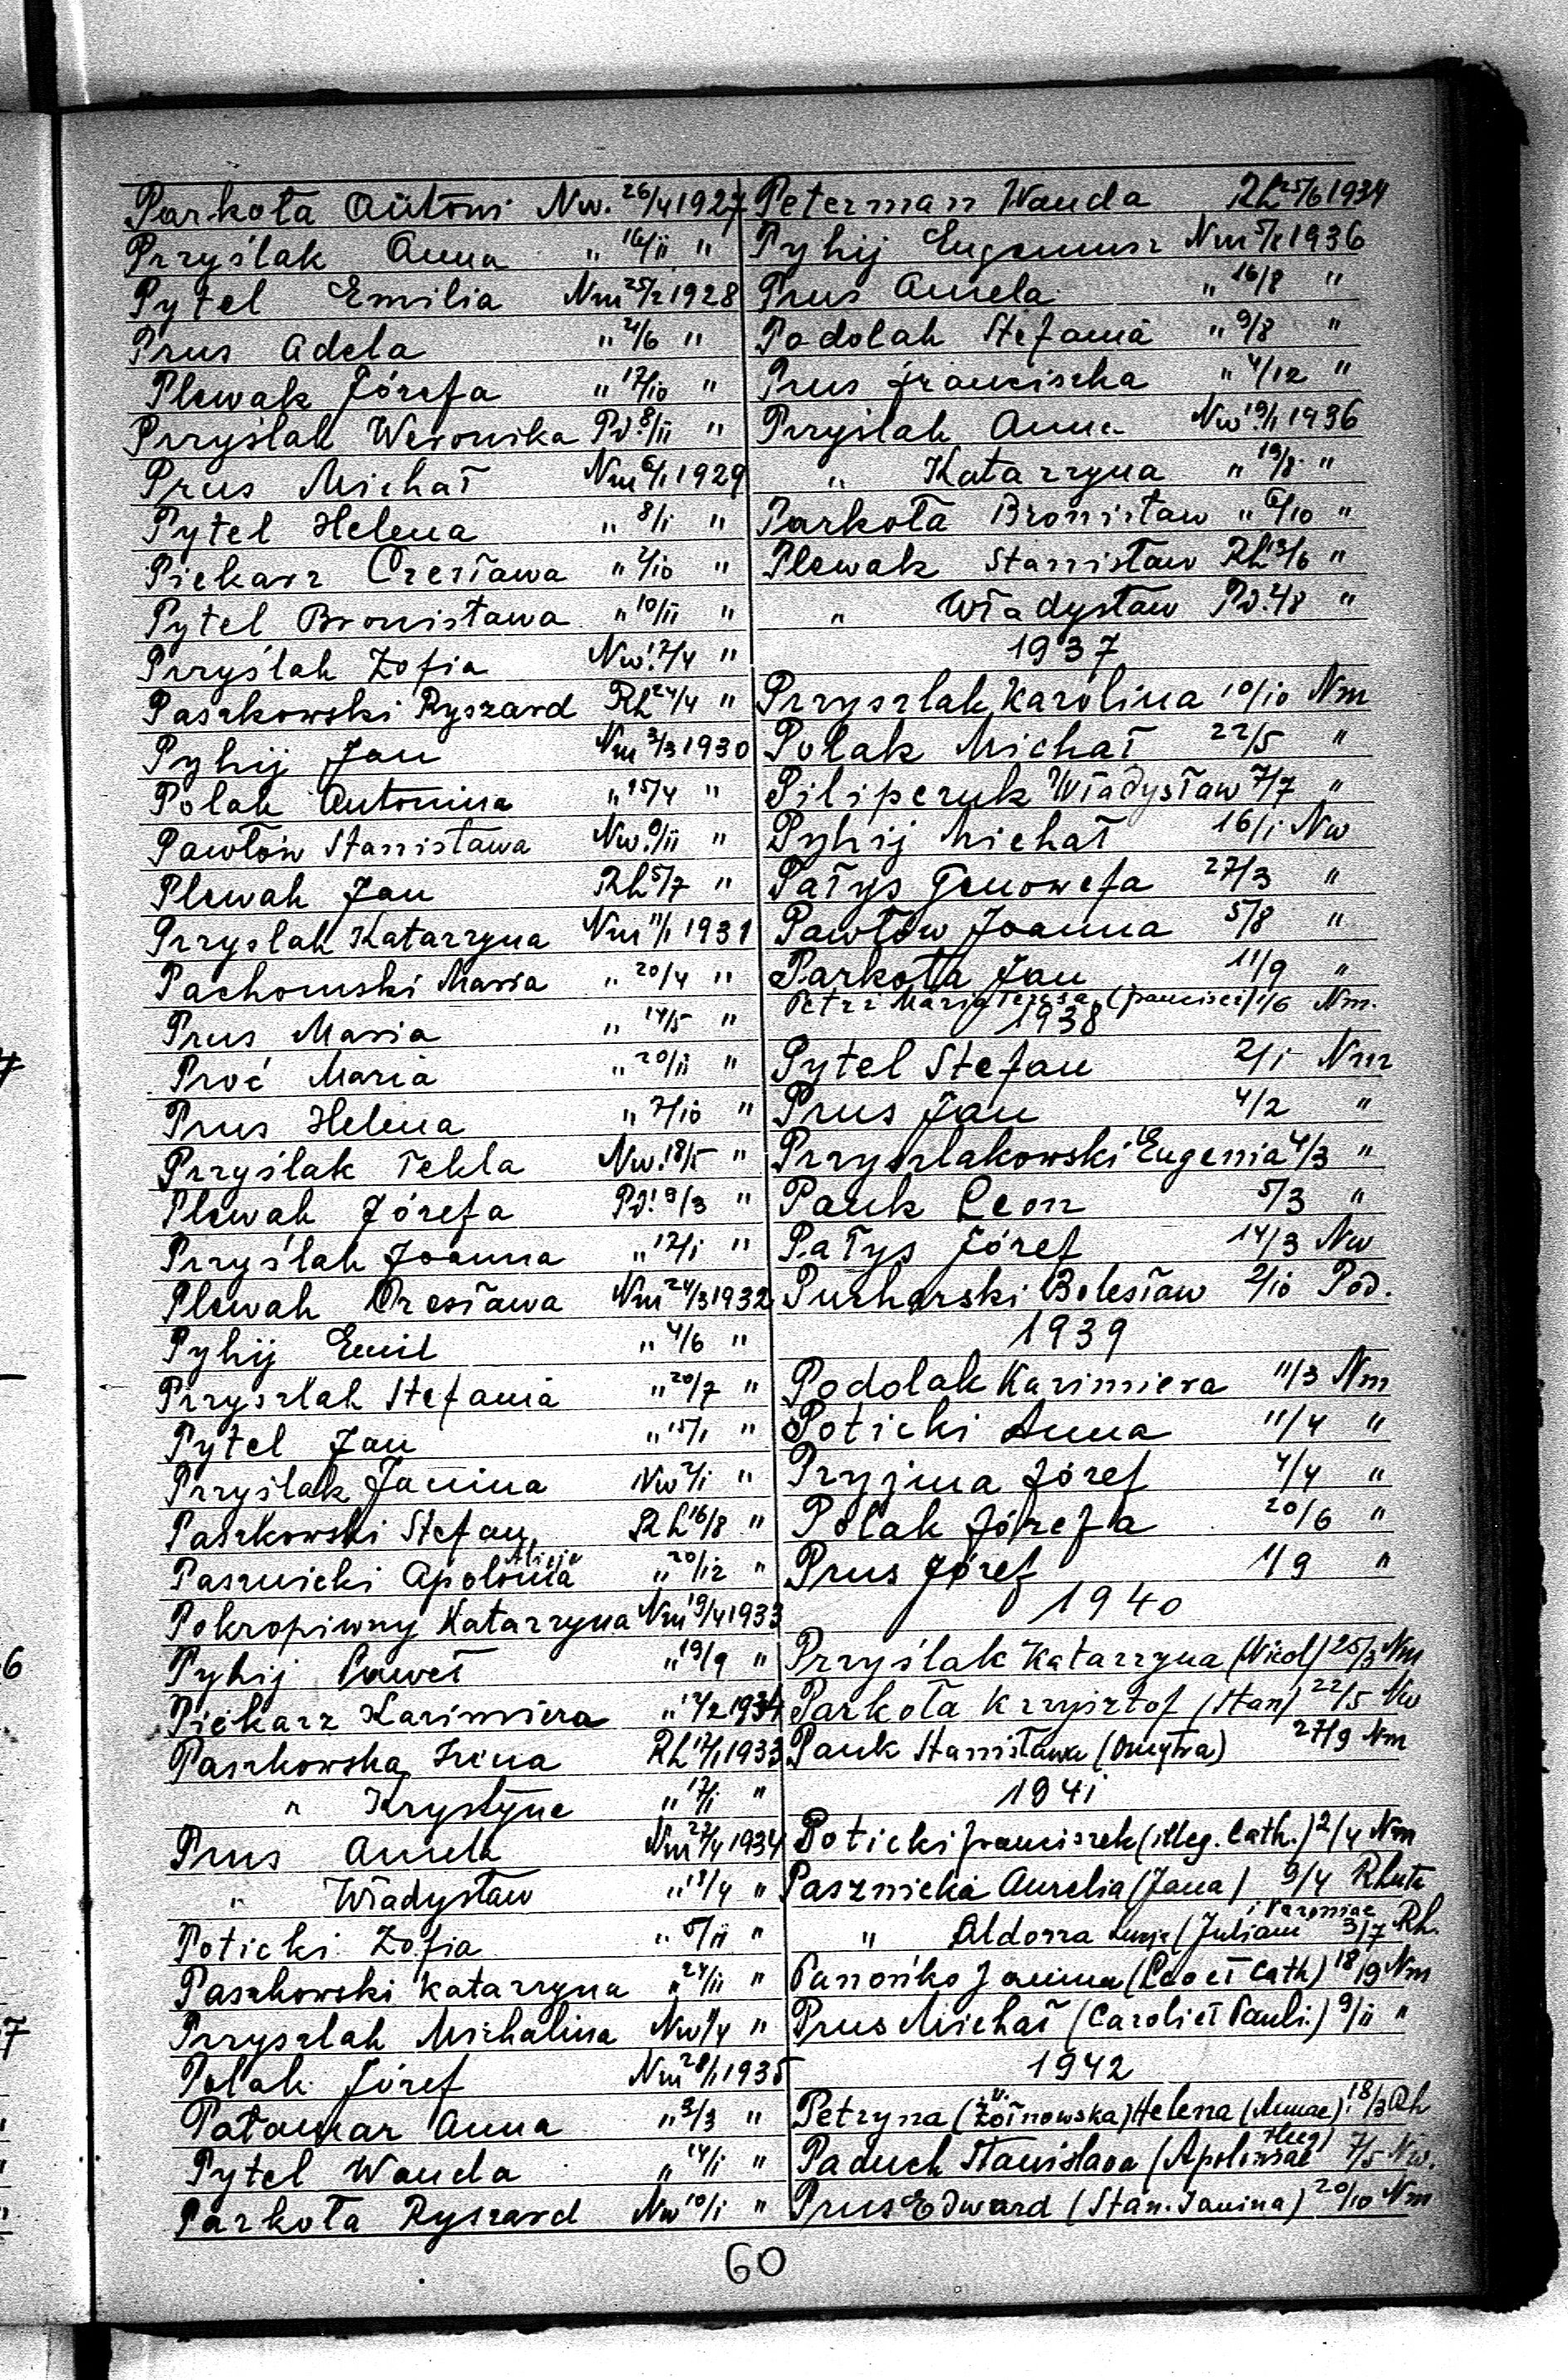 Parkoła Antoni Nw. 26/4 1927
Przyślak Anna " 16/11 "
Pytel Emilia Nm 25/2 1928
Prus Adela " 4/6 "
Plewak Józefa " 17/10 "
Przyślak Weronika Pd. 8/11 "
Prus Michał Nm 6/1 1929
Pytel Helena " 8/1 "
Piekarz Czesława " 2/10 "
Pytel Bronisława " 10/11 "
Przyślak Zofia Nw. 7/4 "
Paszkowski Ryszard Rh 24/4 "
Pyhij Jan Nm 3/3 1930
Polak Antonina " 15/4 "
Pawłów Stanisława Nw. 9/11 "
Plewak Jan Rh 5/7 "
Przyslak Katarzyna Nm 11/1 1931
Pachomski Maria " 20/4 "
Prus Maria " 14/5 "
Proć Maria " 20/11 "
Prus Helena " 7/10 "
Przyślak Tekla Nw. 18/5 "
Plewak Józefa Pd. 9/3 "
Przyślak Joanna " 12/1 "
Plewak Czesława Nm 24/3 1932
Pyhij Emil " 4/6 "
Przyszlak Stefania " 20/7 "
Pytel Jan " 15/1 "
Przyślak Janina Nw 2/1 "
Paszkowski Stefan Rh 16/8 "
Alicja
Pasznicki Apolonia " 20/12 "
Pokropiwny Katarzyna Nm 19/4 1933
Pyhij Paweł " 19/9 "
Piekarz Kazimiera " 12/2 1934
Paszkowska Irena Rh 17/1 1933
" Krystyna " 17/1 "
Prus Aniela Nm 23/4 1934
" Władysław " 18/4 "
Poticki Zofia " 5/11 "
Paszkowski Katarzyna " 24/11 "
Przyszlak Michalina Nw 1/4 "
Polak Józef Nm 28/1 1935
Patamar Anna " 3/3 "
Pytel Wanda " 14/1 "
Parkoła Ryszard Nw 10/1 "
Peterman Wanda Rh 25/6 1934
Pyhij Eugeniusz Nm 5/8 1936
Prus Aniela " 16/8 "
Podolak Stefania " 9/8 "
Prus Franciszka " 4/12 "
Przyślak Anna Nw. 19/1 1936
" Katarzyna " 19/8 "
Parkoła Bronisław " 6/10 "
Plewak Stanisław Rh 13/6 "
" Władysław Pd. 4/8 "
1937
Przyszlak Karolina 10/10 Nm
Polak Michał 22/5 "
Piliperuk Władysław 7/7 "
Pyhij Michał 16/1 Nw
Pałys Genowefa 27/3 "
Pawłów Joanna 5/8 "
Parkoła Jan 11/9 "
Petrz Maria Teresa (Francisci) 1/6 Nm.
1938
Pytel Stefan 2/1 Nm
Prus Jan 4/2 "
Przyszlakowski Eugenia 4/3 "
Pauk Leon 5/3 "
Pałys Józef 14/3 Nw
Puzharski Bolesław 2/10 Pod.
1939
Podolak Kazimiera 11/3 Nm
Poticki Anna 11/4 "
Pryjma Józef 4/4 "
Polak Józefa 20/6 "
Prus Józef 1/9 "
1940
Przyślak Katarzyna (Nicol) 25/3 Nm
Parkoła Krzysztof (Stan) 22/5 Nw
Pauk Stanisława (Dmytra) 27/9 Nm
1941
Poticki Franciszek (illeg. Cath.) 2/4 Nm
Pasznicka Aurelia (Jana) 9/4 Rhuta
" Aldona (Juliani 3/7 Rh.
Panońko Janina (Leo et Cath) 18/9 Nm
Prus Michał (Caroli et Pauli.) 9/11 "
1942
Petryna (v. Żołnowska) Helena (Annae) 18/3 Rh
illeg)
Paduch Stanislava (Apoloniae 7/5 Nw.
Prus Edward (Stan. Janina) 20/10 Nm
60